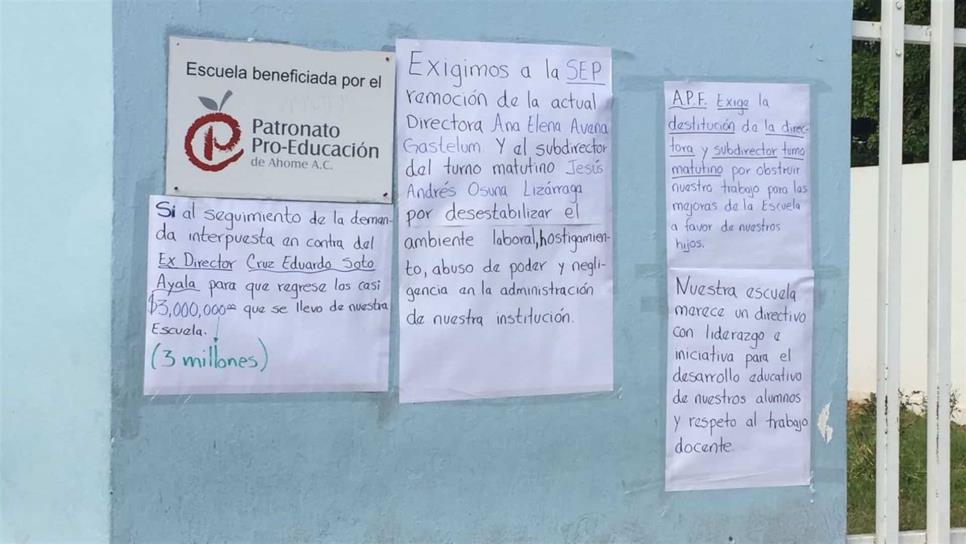 Escuela beneficiada por el
Patronato
Pro-Educación
de Ahome A.C.
Si al seguimiento de la deman-
da interpuesta en contra del
Ex Director Cruz Eduardo Soto
Ayala para que regrese los casi
$3,000,000.00 que se llevo de nuestra
Escuela.
(3 millones)
Exigimos a la SEP
remoción de la actual
Directora Ana Elena Avena
Gastelum Y al subdirector
del turno matutino Jesús
Andrés Osuna Lizárraga
por desestabilizar el
ambiente laboral, hostigamien-
to, abuso de poder y negli-
gencia en la administración
de nuestra institución.
A.P.F. Exige la
destitución de la direc-
tora y subdirector turno
matutino por obstruir
nuestro trabajo para las
mejoras de la Escuela
a favor de nuestros
hijos.
Nuestra escuela
merece un directivo
con liderazgo e
iniciativa para el
desarrollo educativo
de nuestros alumnos
y respeto al trabajo
docente.